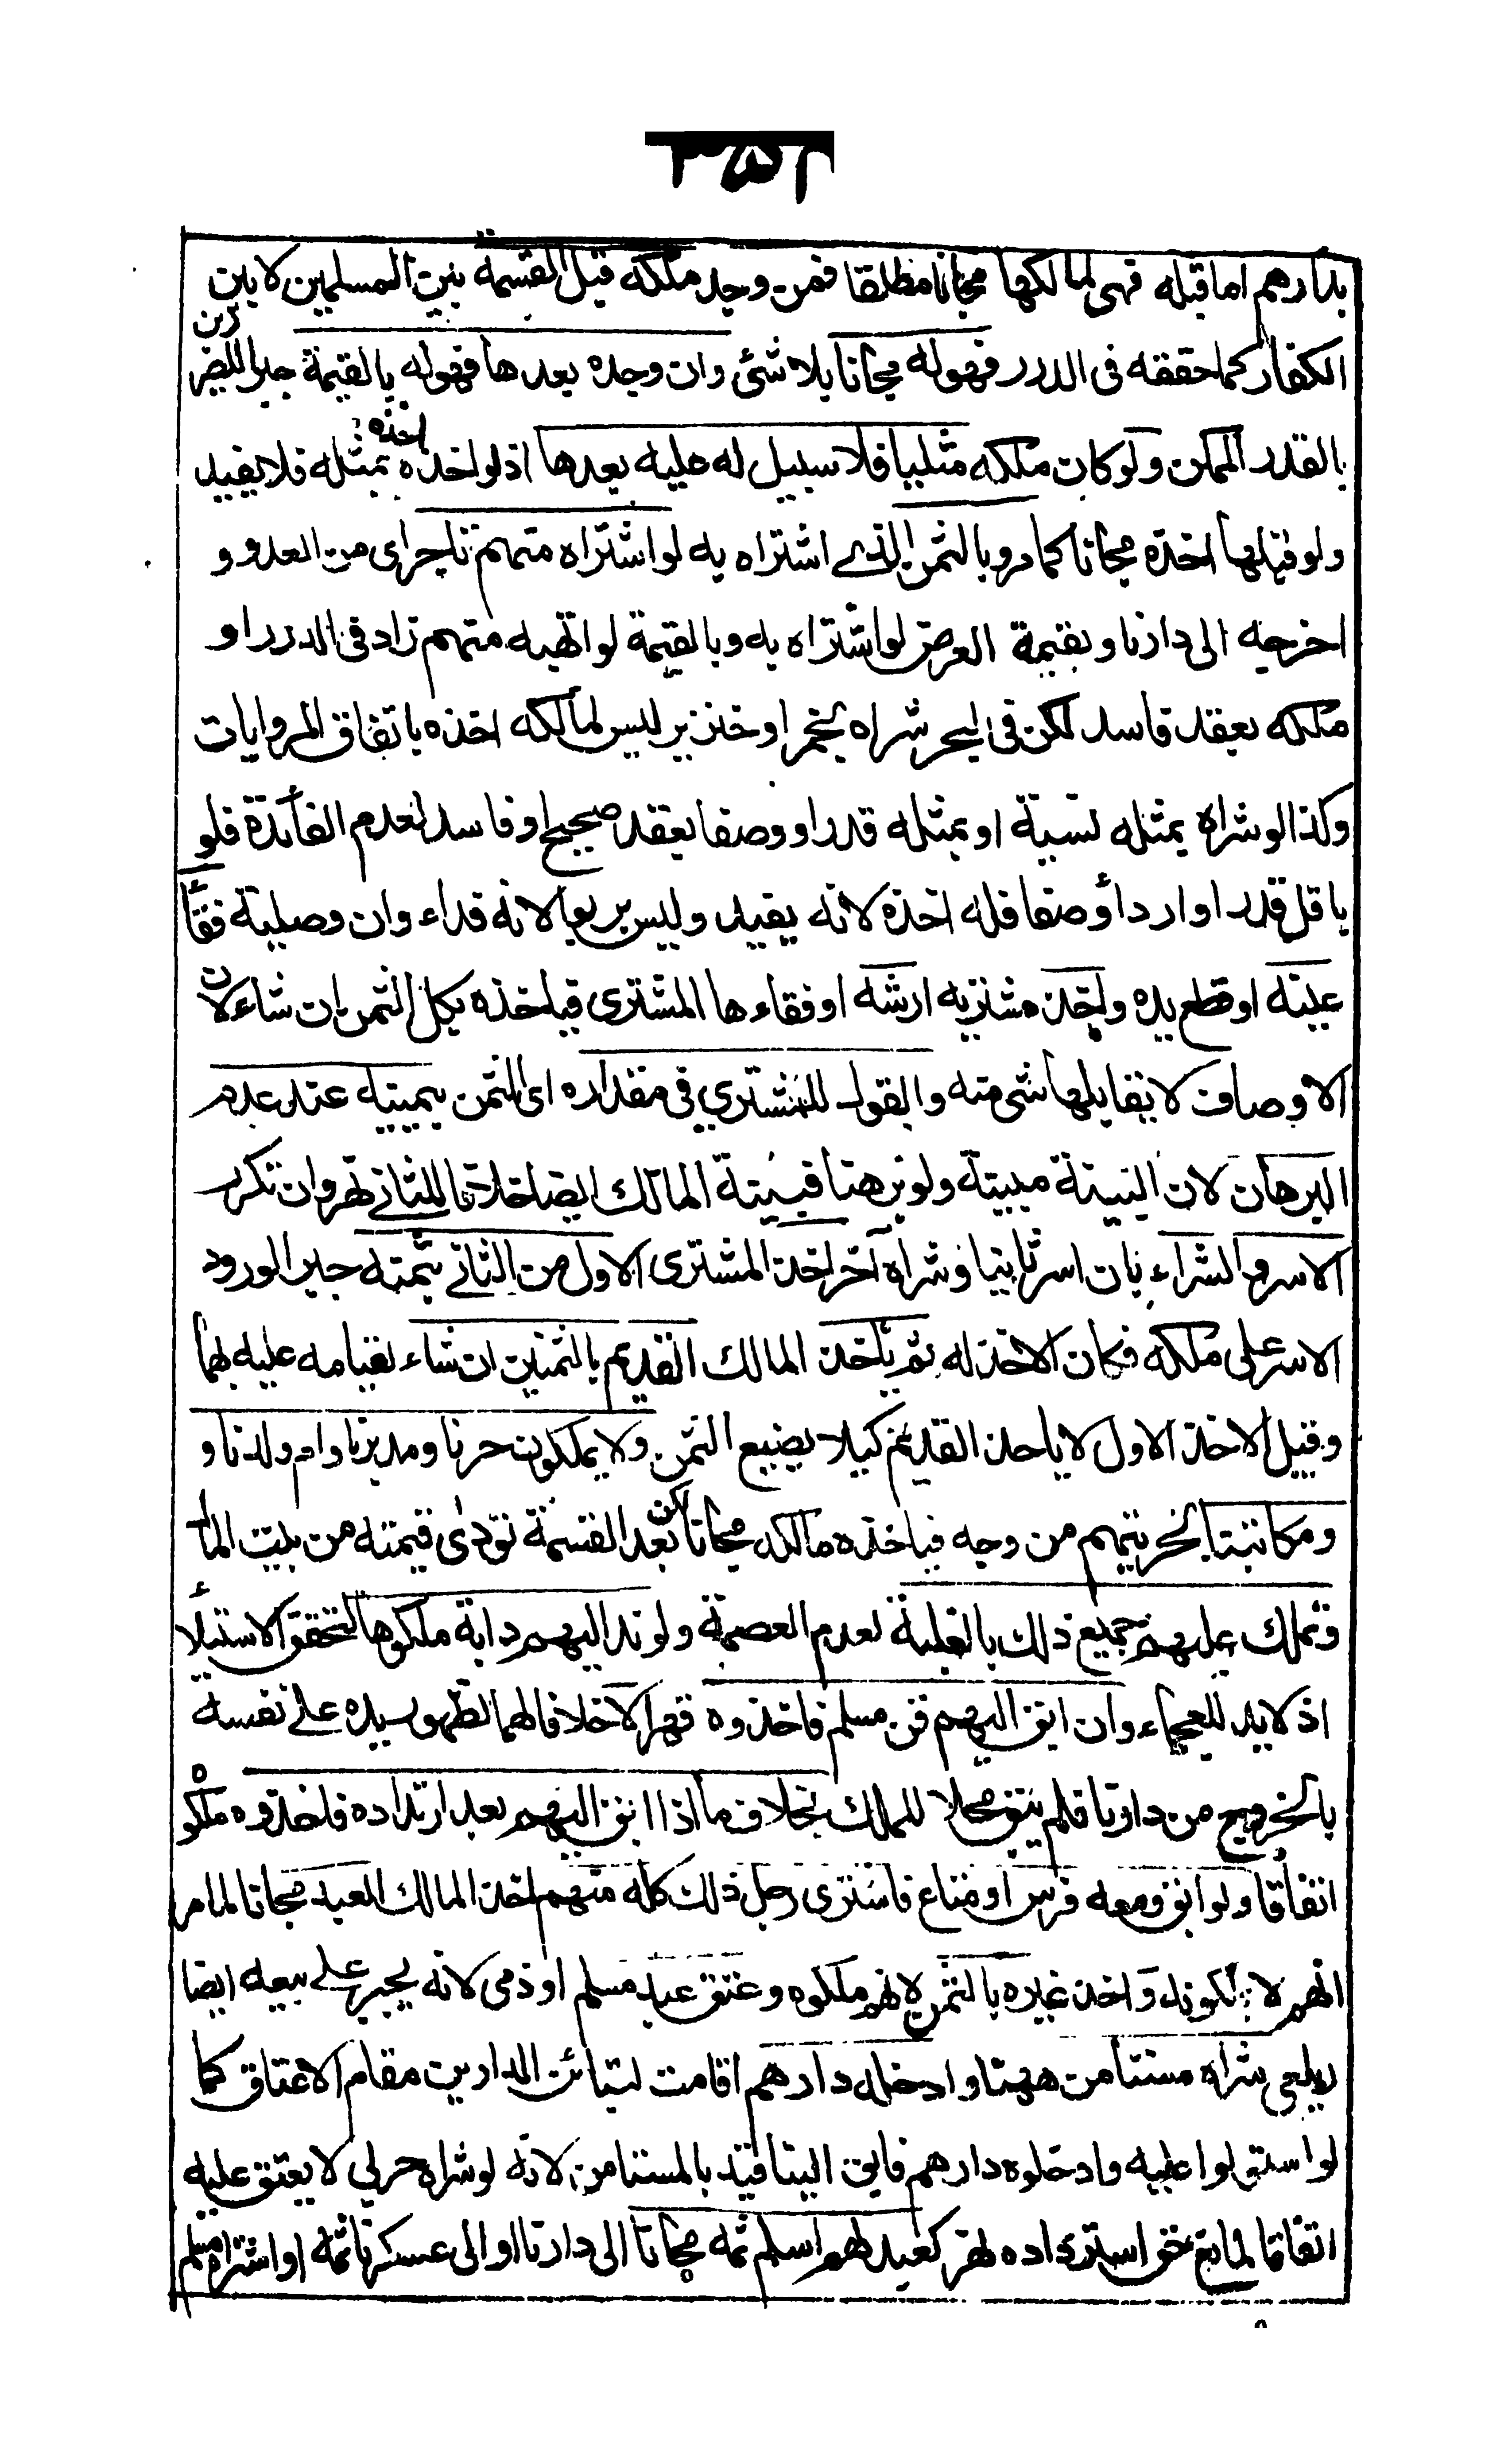 ٣٥٢
بدارهم اما قبله فهى لمالكها مجانا مطلقا فمن وجد ملكه قبل القسمة بين المسلمين لا بين
الكفار كما حققه فى الدرر فهو له مجانا بلا شئ وان وجده بعدها فهو له بالقيمة جبرا للضررين
بالقدر الممكن ولو كان ملكه مثليا فلا سبيل له عليه بعدها اذ لو اخذه اخذه بمثله فلا يفيد
ولو قبلها اخذه مجانا كما مر وبالثمن الذى اشتراه به لو اشتراه منهم تاجر اى من العدو و
اخرجه الى دارنا وبقيمة العرض لو اشتراه به وبالقيمة لو اتهبه منهم زاد فى الدرر او
ملكه بعقد فاسد لكن فى البحر شراه بخمر او خنزير ليس لمالكه اخذه باتفاق الروايات
وكذا لو شراه بمثله نسيئة او بمثله قدرا ووصفا بعقد صحيح او فاسد لعدم الفائدة فلو
باقل قدرا او اردأ وصفا فله اخذه لانه يفيد وليس بربوا لانه فداء وان وصلية فقأ
عينه او قطع يده واخذ مشتريه ارشه او فقاءها المشترى فياخذه بكل الثمن ان شاء لان
الاوصاف لا يقابلها شئ منه والقول للمشتري في مقداره اى الثمن بيمينه عند عدم
البرهان لان البينة مبينة ولو برهنا فبينة المالك ايضا خلافا للثانے نهر وان تكرر
الاسر والشراء بان اسر ثانيا وشراه آخر اخذ المشترى الاول من الثانے بثمنه جبرا لورود
الاسر على ملكه فكان الاخذ له ثم ياخذ المالك القديم بالثمنين ان شاء لقيامه عليه بهما
وقبل الاخذ الاول لا ياخذ القديم كيلا يضيع الثمن ولا يملكون حرنا ومدبرنا وام ولدنا و
ومكاتبنا لحريتهم من وجه فياخذه مالكه مجانا لكن بعد القسمة تودى قيمته من بيت المال
ونملك عليهم جميع ذلك بالغلبة لعدم العصمة ولو ند اليهم دابة ملكوها لتحقق الاستيلأ
اذ لا يد للعجماء وان ابق اليهم قن مسلم فاخذوه قهرا لا خلافا لهما لظهور يده علے نفسه
بالخروج من دارنا فلم يبق محلا للملك بخلاف ما اذا ابق اليهم بعد ارتداده فاخذوه ملكوه
اتفاقا ولو ابق ومعه فرس او متاع فاشترى رجل ذلك كله منهم اخذ المالك العبد مجانا لما مر
انهم لا يملكونه واخذ غيره بالثمن لانهم ملكوه وعتق عبد مسلم او ذمى لانه يجبر علے بيعه ايضا
زيلعى شراه مستأمن ههنا وادخله دارهم اقامت لتبائن الدارين مقام الاعتاق كما
لو استولوا عليه وادخلوه دارهم فابق الينا قيد بالمستامن لانه لو شراه حربى لا يعتق عليه
اتفاقا لمانع حق استرداده نهر كعبد لهم اسلم ثمه مجانا الى دارنا او الى عسكرنا ثمه او اشتراه مسلم